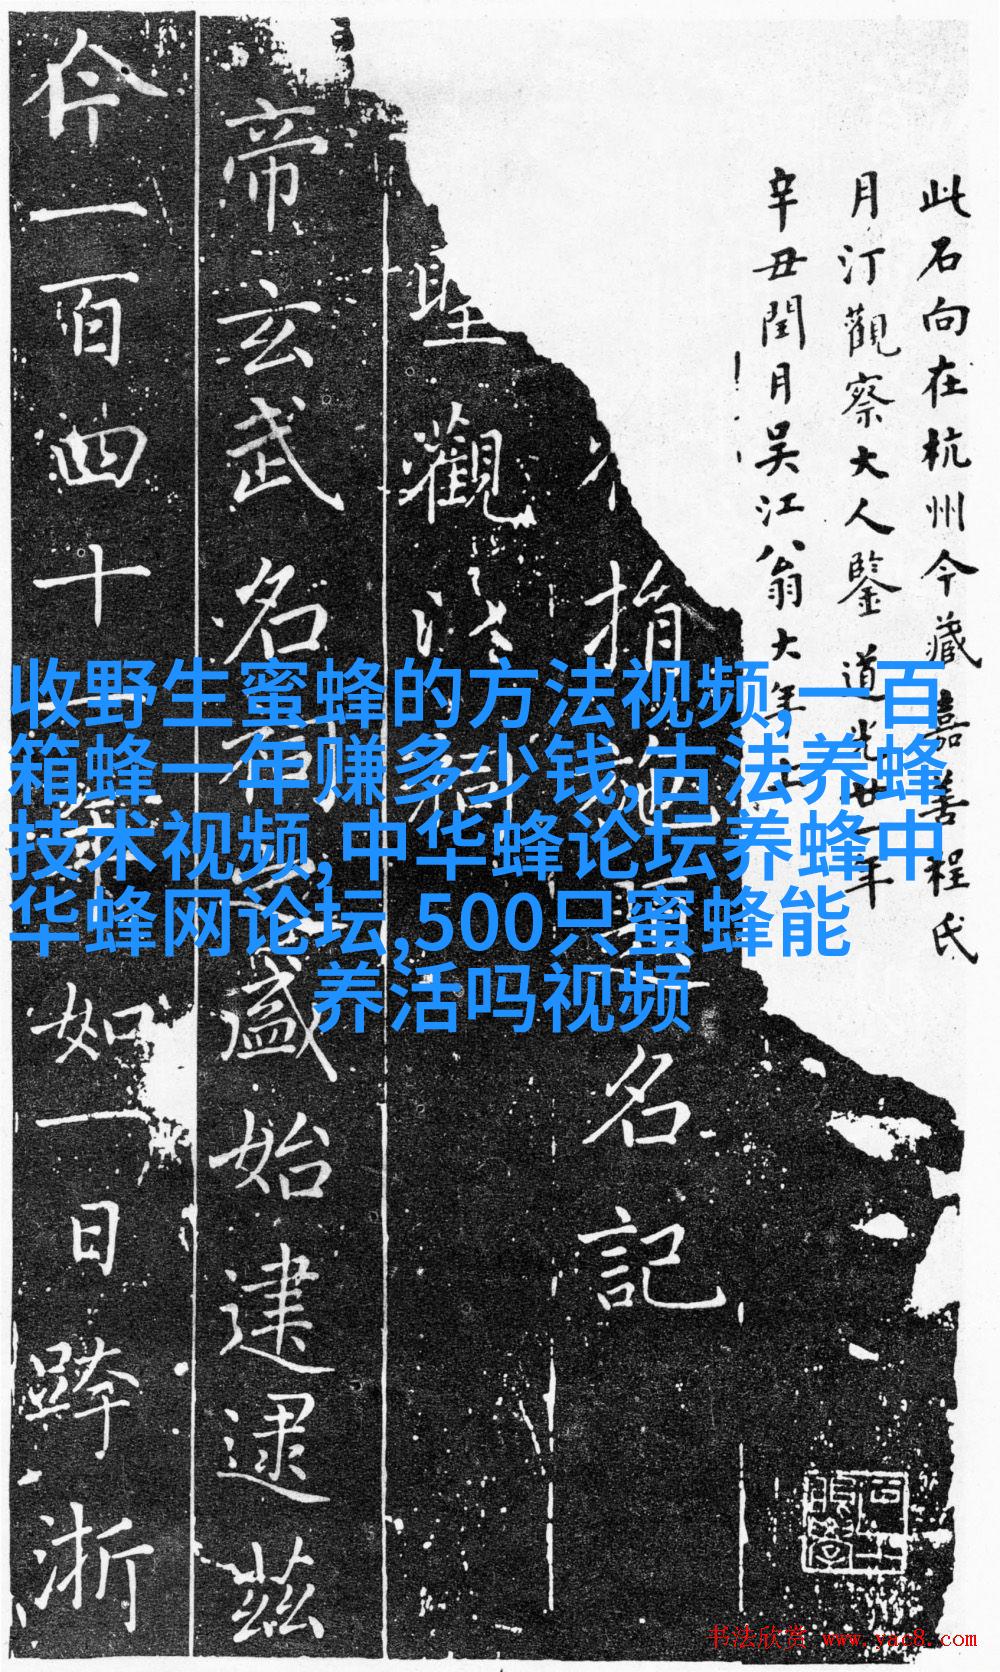 此石向在杭州今藏嘉善程氏
月汀觀察大人鑒 道光廿一年
辛丑閏月吳江翁大年
指名記
聖觀
帝玄武名盛始建逮茲
今一百四十如一日跨浙
收野生蜜蜂的方法视频,一百
箱蜂一年赚多少钱,古法养蜂
技术视频,中华蜂论坛养蜂中
华蜂网论坛,500只蜜蜂能
养活吗视频
书法欣赏 www.yac8.com